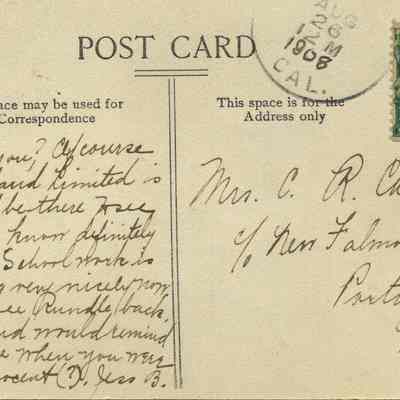 POST CARD
AUG
26
1 M
1908
CAL.
ace may be used for
Correspondence
This space is for the
Address only
you? Of course
Limited is
be there to see
know definitely
School work is
very nicely now
ee Rundle back,
nd would remind
e when you were
nocent (?). Jess B.
Mrs. C. R. C
c/o New Falmo
Port